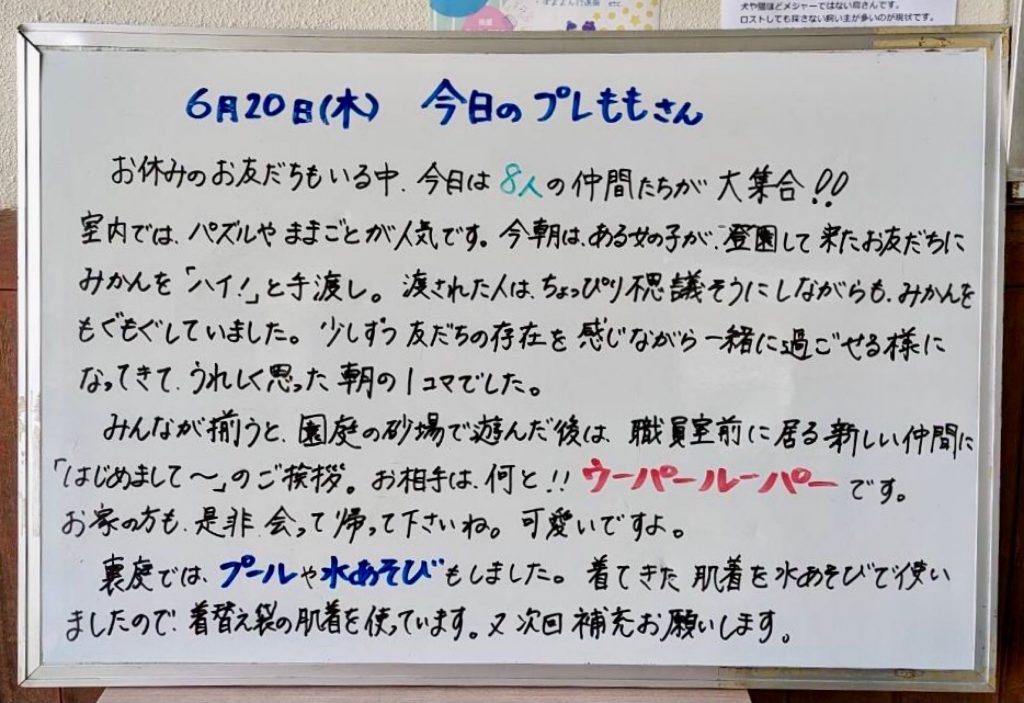 犬や猫ほどメジャーではない鳥さんです。
ロストしても探さない飼い主が多いのが現状です。
6月20日(木) 今日のプレももさん
お休みのお友だちもいる中、今日は8人の仲間たちが大集合!!
室内では、パズルやままごとが人気です。今朝は、ある女の子が、登園して来たお友だちに
みかんを「ハイ!」と手渡し。渡された人は、ちょっぴり不思議そうにしながらも、みかんを
もぐもぐしていました。少しずつ友だちの存在を感じながら一緒に過ごせる様に
なってきて、うれしく思った朝の1コマでした。
みんなが揃うと、園庭の砂場で遊んだ後は、職員室前に居る新しい仲間に
「はじめまして〜」のご挨拶。お相手は、何と!!ウーパールーパーです。
お家の方も、是非会って帰って下さいね。可愛いですよ。
裏庭では、プールや水あそびもしました。着てきた肌着を水あそびで使い
ましたので、着替え袋の肌着を使っています。又次回補充お願いします。